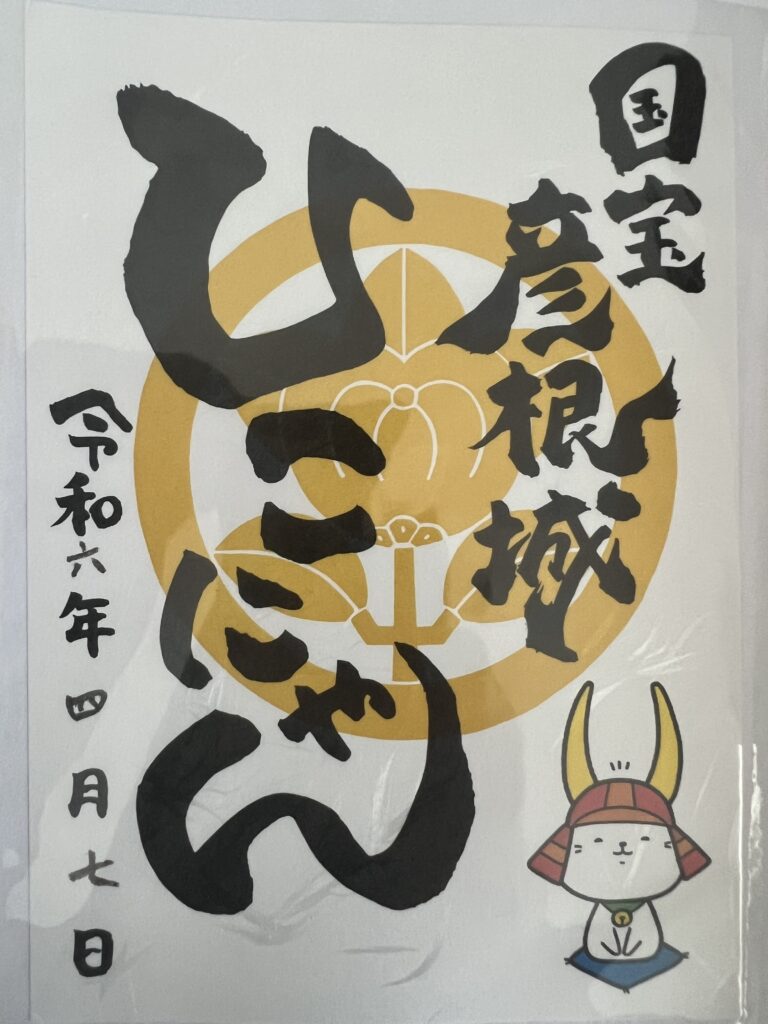 国宝
彦根城
ひこにゃん
令和六年四月七日